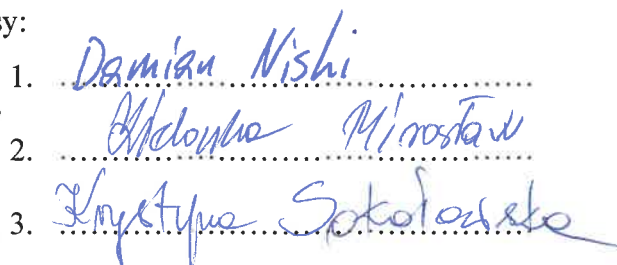 sy:
1. Damian Niski
2. Mirosław
3. Krystyna Sokołowska